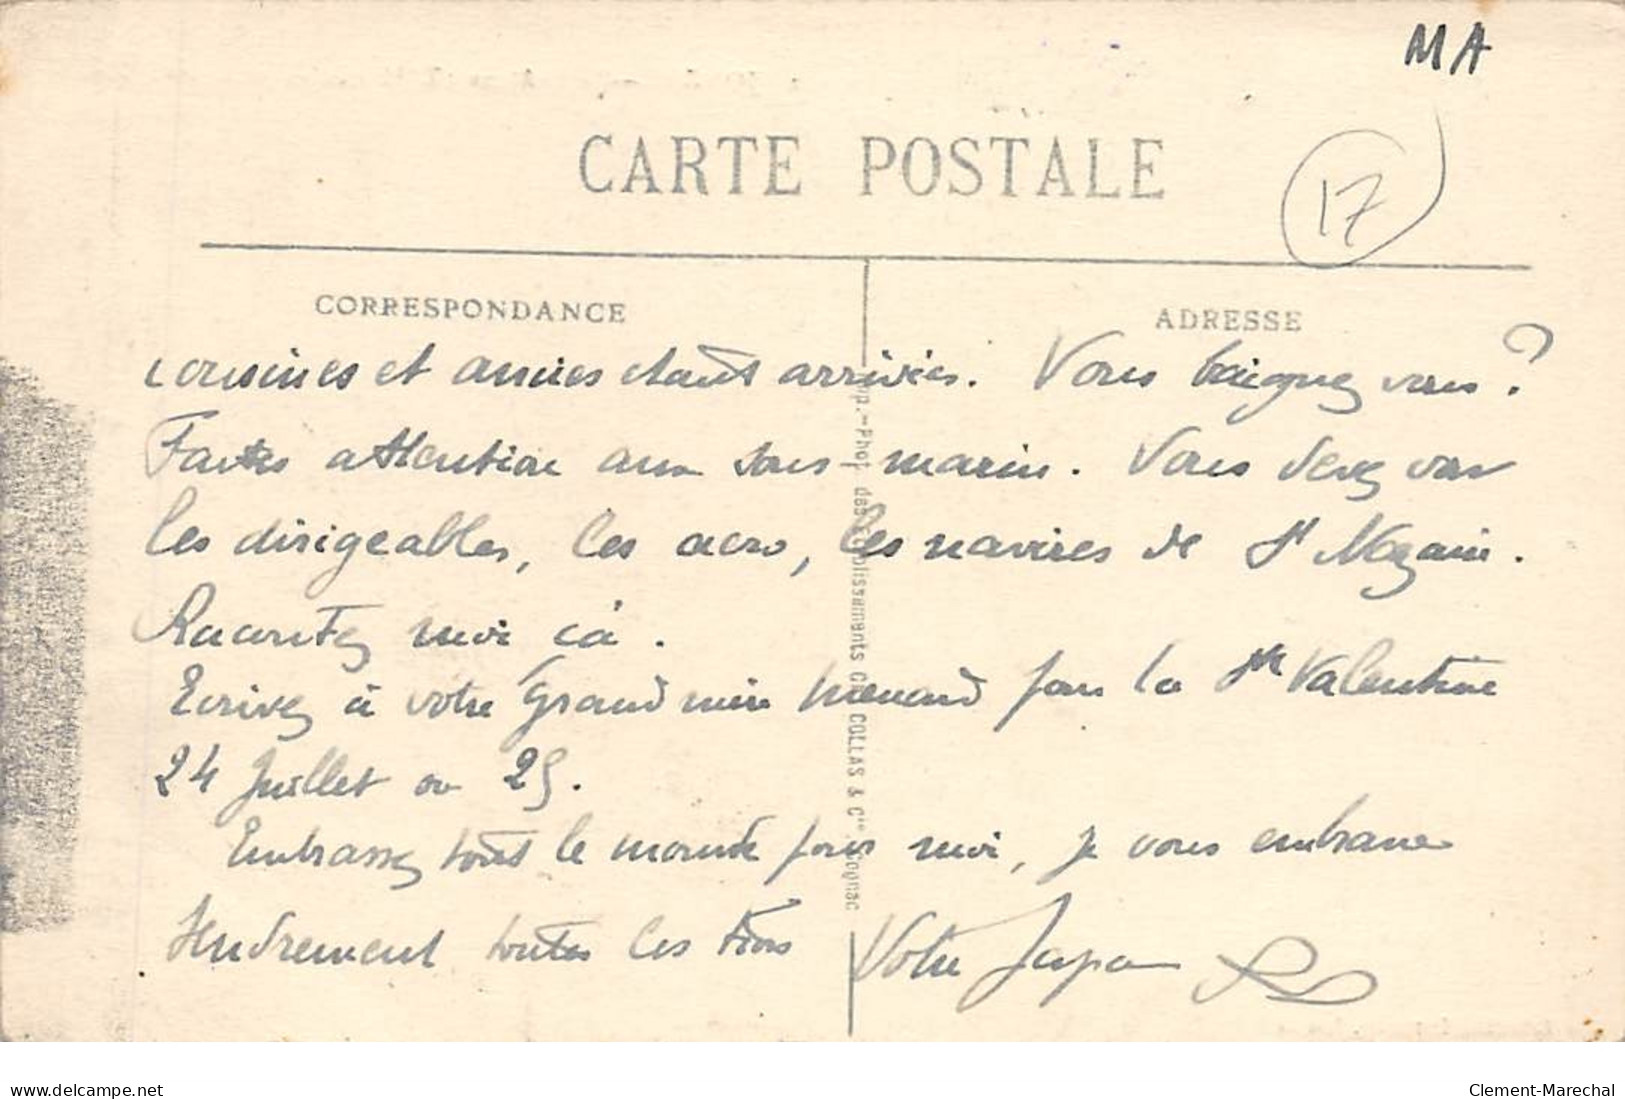 MA
CARTE POSTALE
17
CORRESPONDANCE
ADRESSE
cousines et amies étant arrivées. Vous baignez vous?
Faites attention aux sous-marins. Vous devez voir
les dirigeables, les aero, les navires de St Nazaire.
Racontez moi ça.
Ecrivez à votre Grand mère pour la Ste Valentine
24 Juillet ou 25.
Embrassez tout le monde pour moi, je vous embrasse
tendrement toutes les trois Votre Papa
Imp.-Phot. des Etablissements COLLAS & Cie Cognac
www.delcampe.net
Clement-Marechal